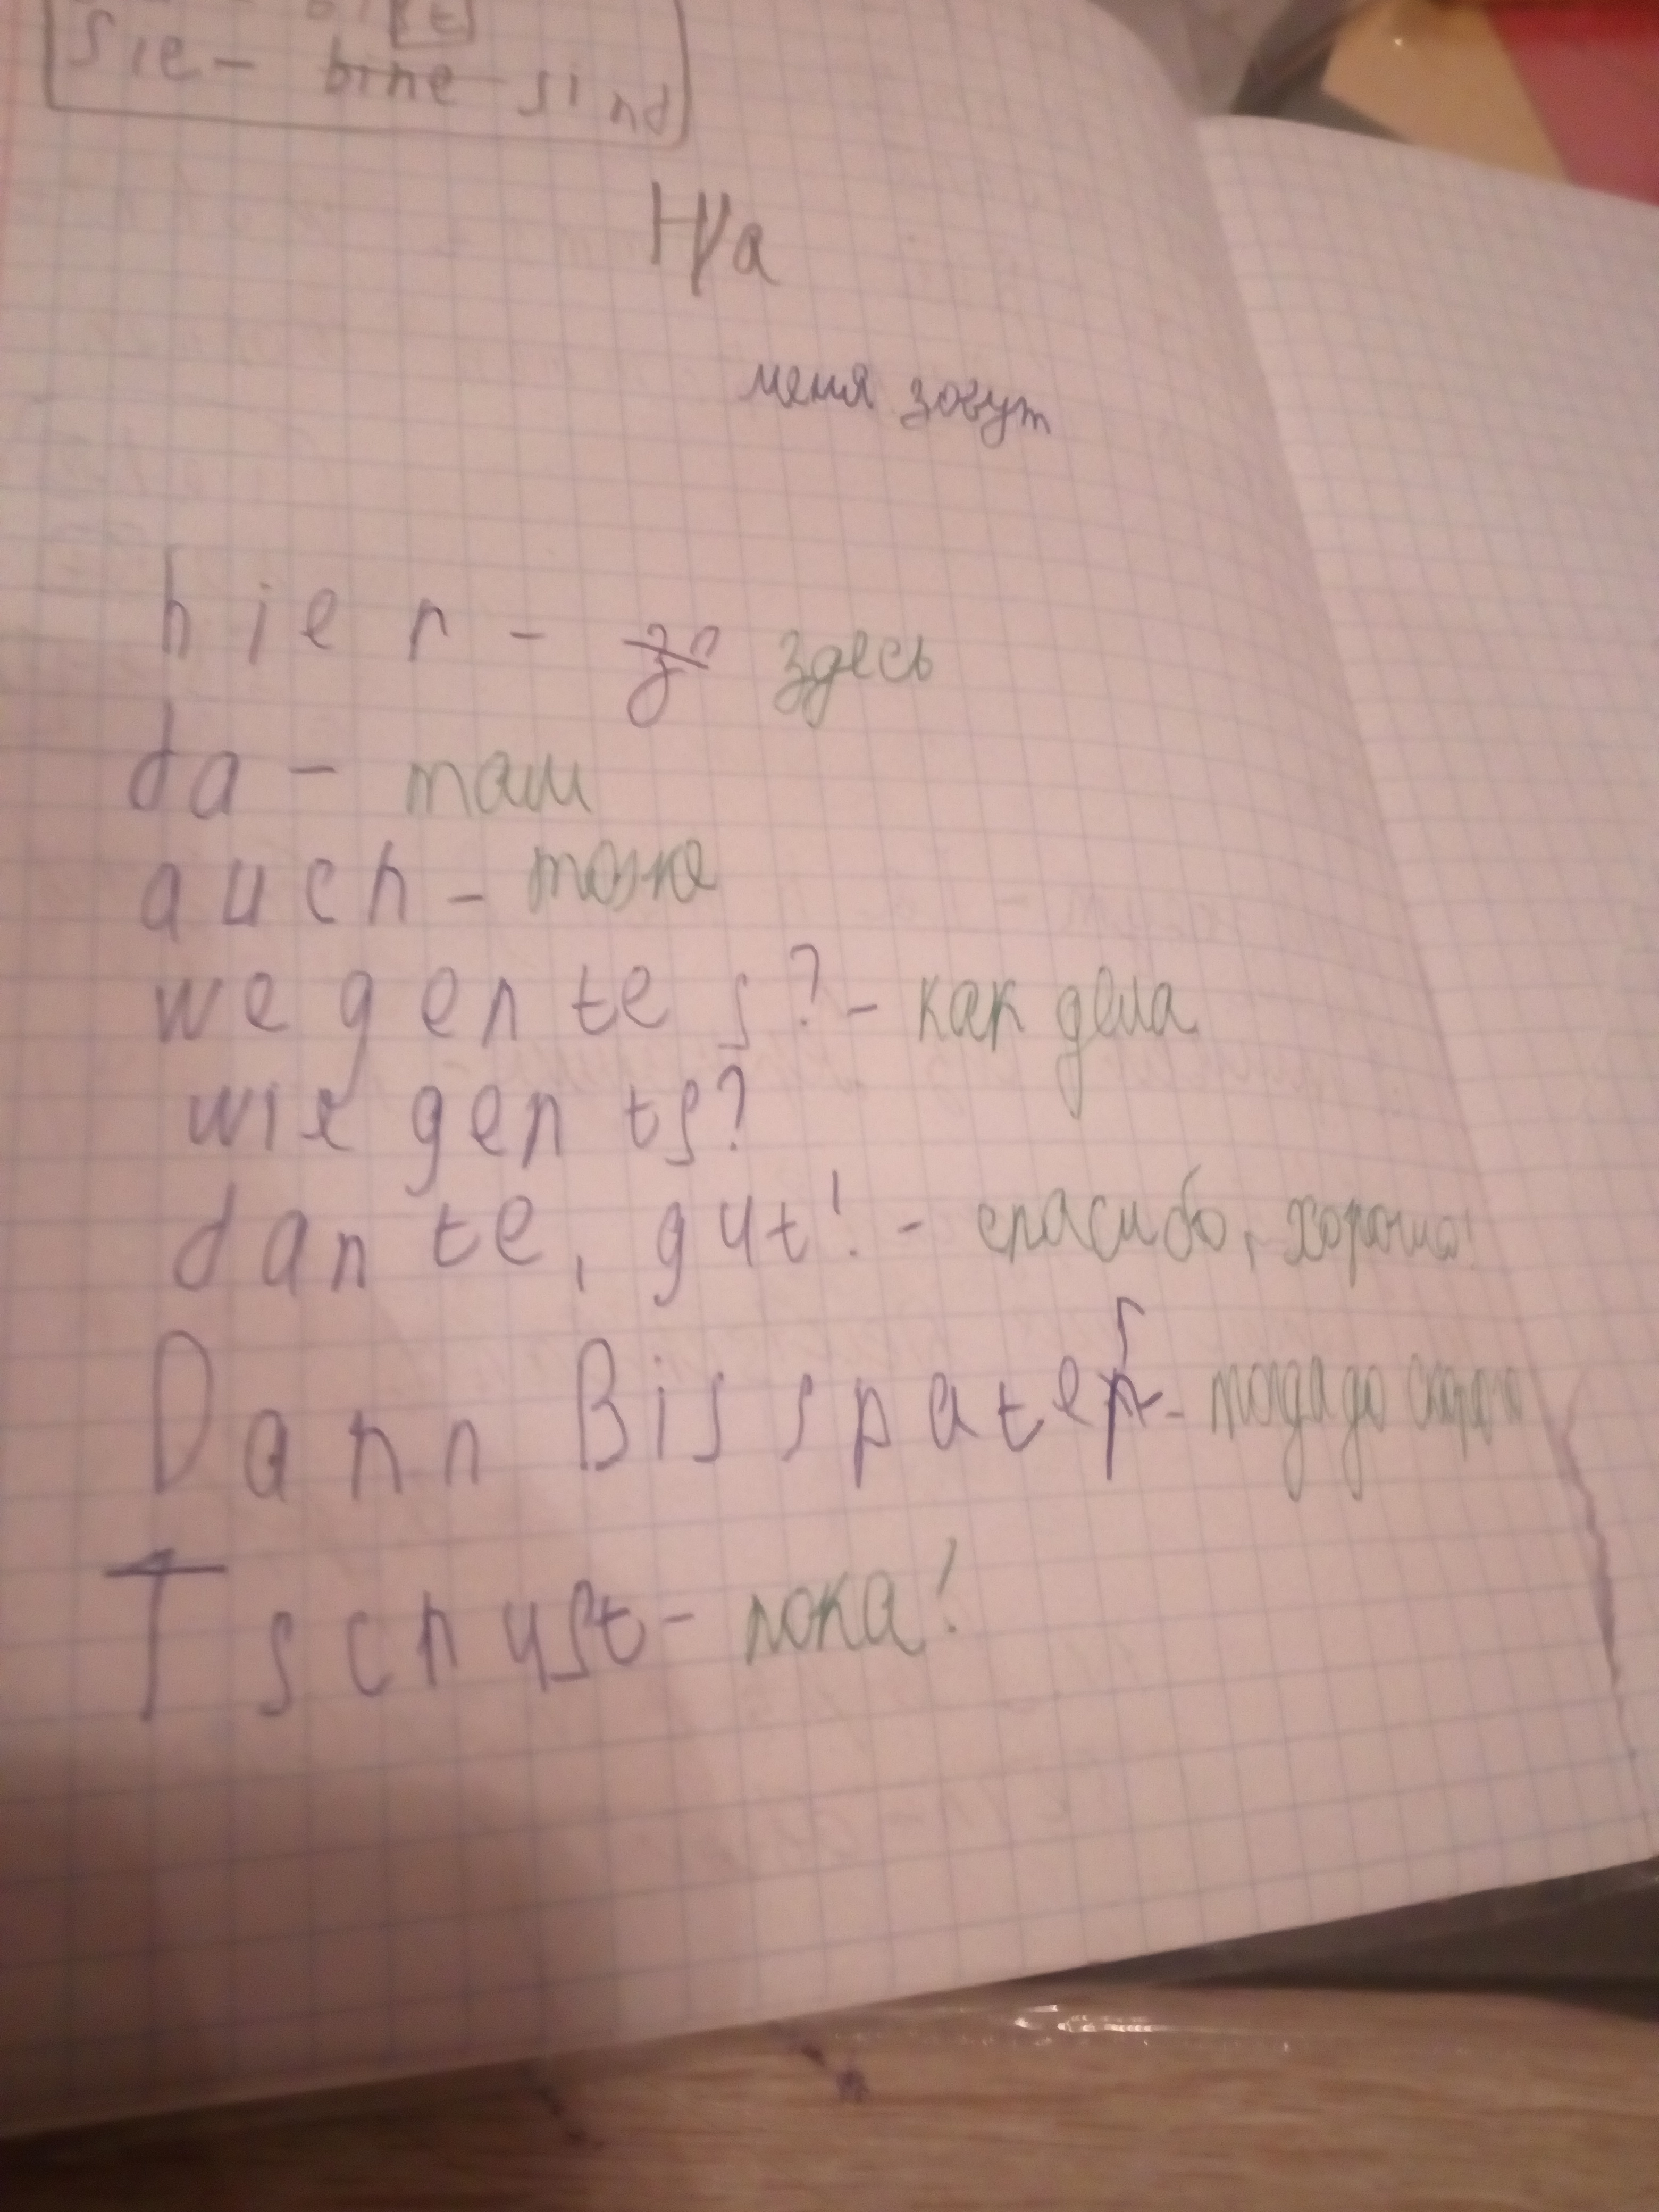 Sie - bine sind
H/a
меня зовут
hier - здесь
da - там
auch - тоже
we gen te s? - как дела
wie gen ts?
dan te, gut! - спасибо, хорошо!
Dann Bis spater - тогда до скорого
Tschust - пока!